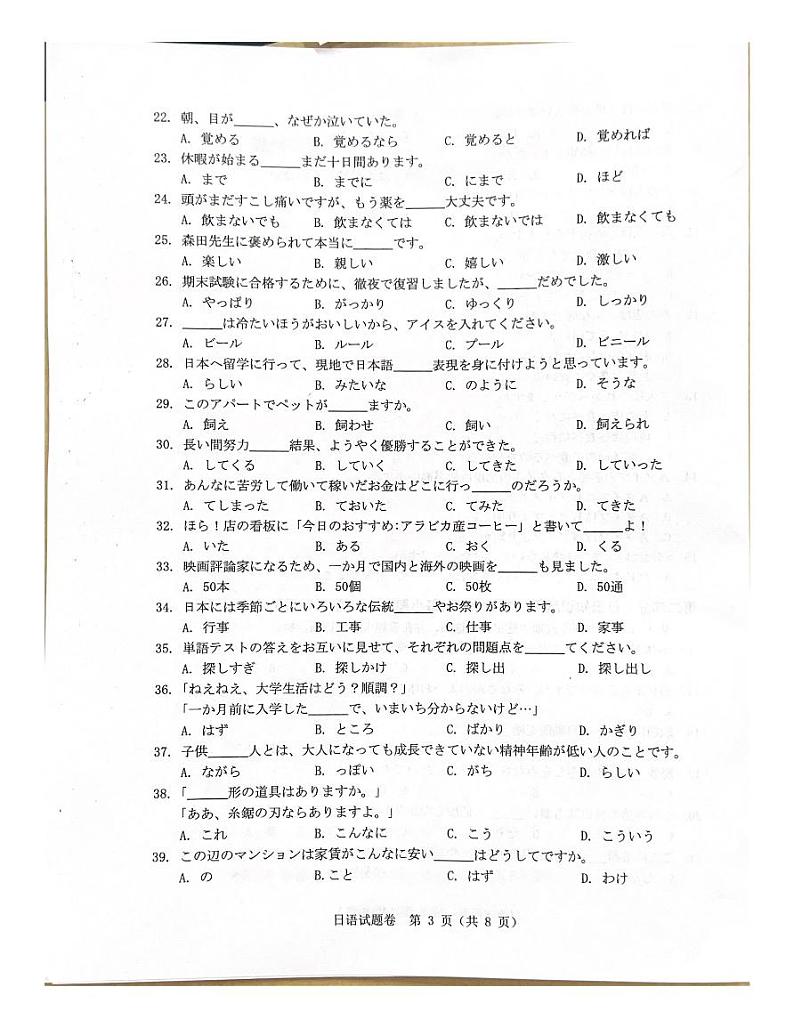 22. 朝、目が______、なぜか泣いていた。
A. 覚める B. 覚めるなら C. 覚めると D. 覚めれば
23. 休暇が始まる______まだ十日間あります。
A. まで B. までに C. にまで D. ほど
24. 頭がまだすこし痛いですが、もう薬を______大丈夫です。
A. 飲まないでも B. 飲まなくては C. 飲まないでは D. 飲まなくても
25. 森田先生に褒められて本当に______です。
A. 楽しい B. 親しい C. 嬉しい D. 激しい
26. 期末試験に合格するために、徹夜で復習しましたが、______だめでした。
A. やっぱり B. がっかり C. ゆっくり D. しっかり
27. ______は冷たいほうがおいしいから、アイスを入れてください。
A. ビール B. ルール C. プール D. ビニール
28. 日本へ留学に行って、現地で日本語______表現を身に付けようと思っています。
A. らしい B. みたいな C. のように D. そうな
29. このアパートでペットが______ますか。
A. 飼え B. 飼わせ C. 飼い D. 飼えられ
30. 長い間努力______結果、ようやく優勝することができた。
A. してくる B. していく C. してきた D. していった
31. あんなに苦労して働いて稼いだお金はどこに行っ______のだろうか。
A. てしまった B. ておいた C. てみた D. てきた
32. ほら！店の看板に「今日のおすすめ:アラビカ産コーヒー」と書いて______よ！
A. いた B. ある C. おく D. くる
33. 映画評論家になるため、一か月で国内と海外の映画を______も見ました。
A. 50本 B. 50個 C. 50枚 D. 50通
34. 日本には季節ごとにいろいろな伝統______やお祭りがあります。
A. 行事 B. 工事 C. 仕事 D. 家事
35. 単語テストの答えをお互いに見せて、それぞれの問題点を______てください。
A. 探しすぎ B. 探しかけ C. 探し出 D. 探し出し
36. 「ねえねえ、大学生活はどう？順調？」
「一か月前に入学した______で、いまいち分からないけど…」
A. はず B. ところ C. ばかり D. かぎり
37. 子供______人とは、大人になっても成長できていない精神年齢が低い人のことです。
A. ながら B. っぽい C. がち D. らしい
38. 「______形の道具はありますか。」
「ああ、糸鋸の刃ならありますよ。」
A. これ B. こんなに C. こう D. こういう
39. この辺のマンションは家賃がこんなに安い______はどうしてですか。
A. の B.こと C. はず D. わけ
日语试题卷 第 3 页（共 8 页）